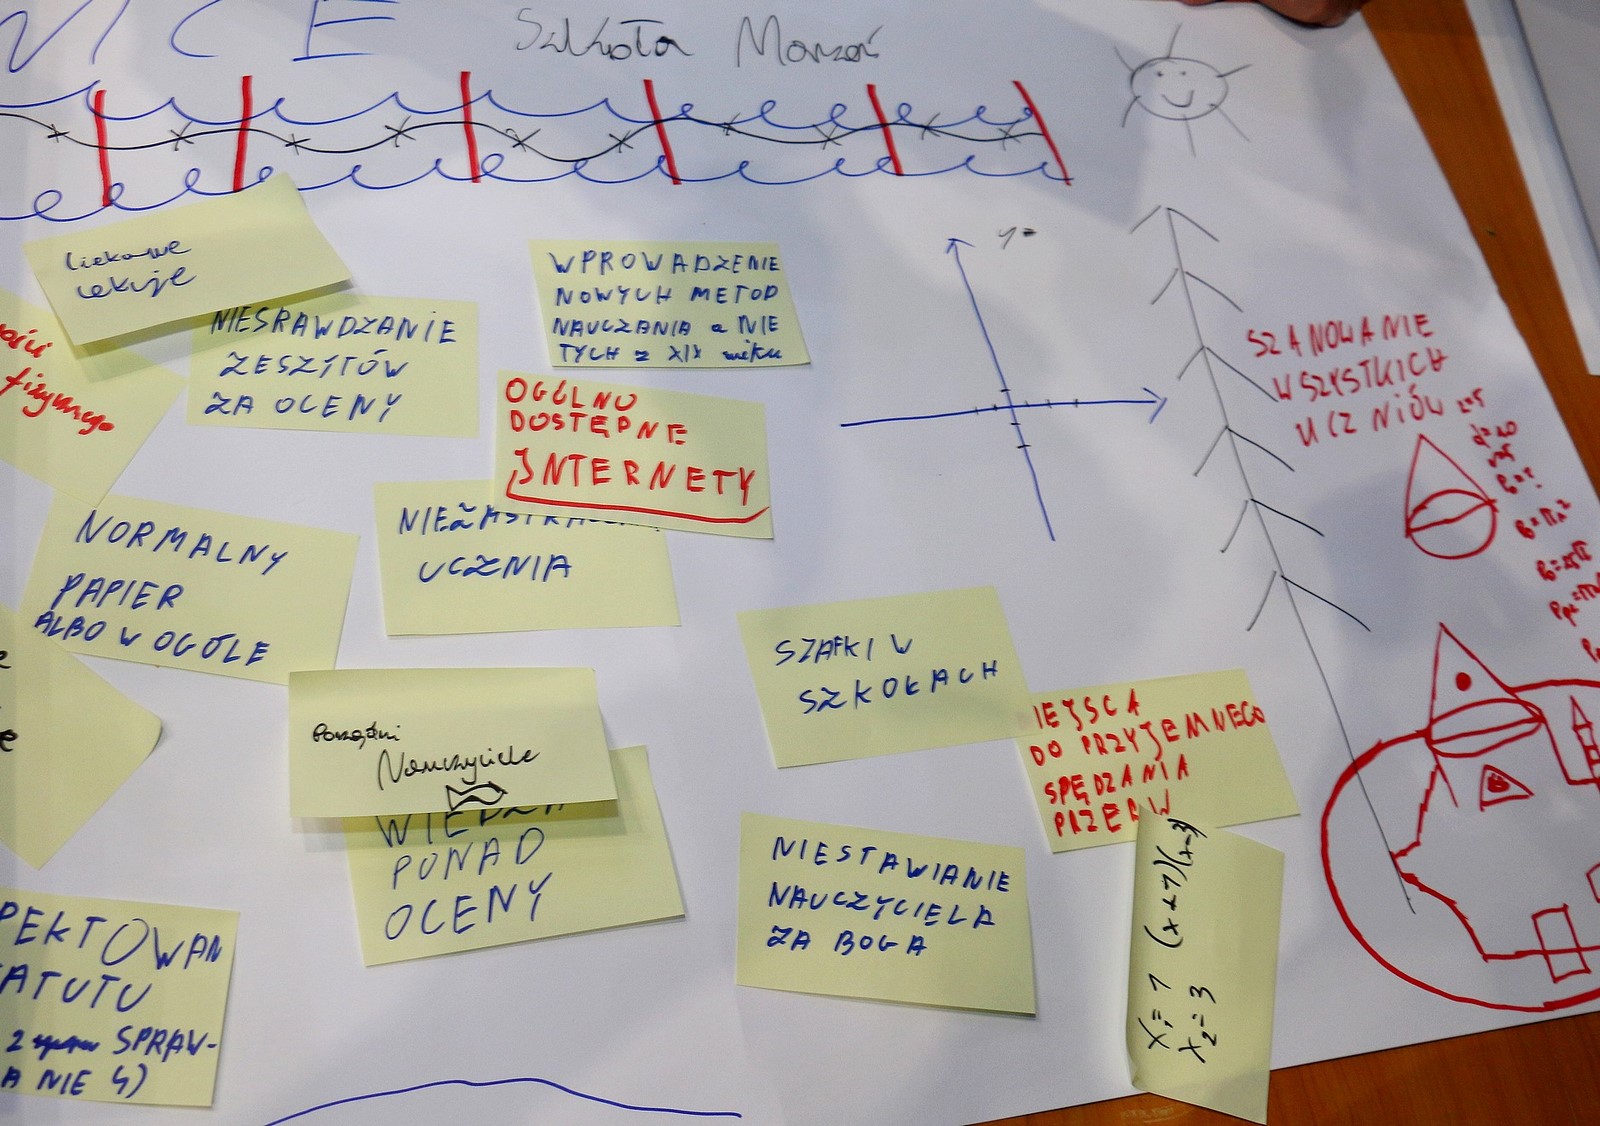 Szkoła Marzeń
Ciekawe
lekcje
NIESRAWDZANIE
ZESZYTÓW
ZA OCENY
WPROWADZENIE
NOWYCH METOD
NAUCZANIA a NIE
TYCH z XIX wieku
OGÓLNO
DOSTĘPNE
INTERNETY
fizycznego
NORMALNY
PAPIER
ALBO W OGÓLE
UCZNIA
y=
SZANOWANIE
WSZYSTKICH
UCZNIÓW
SZAFKI W
SZKOŁACH
IEJSCA
DO PRZYJEMNEGO
SPĘDZANIA
PRZERW
Porządni
Nauczyciele
WIEDZA
PONAD
OCENY
NIESTAWIANIE
NAUCZYCIELA
ZA BOGA
PEKTOWAN
ATUTU
SPRAW-
A NIE 4)
(x+7)(x-3)
X₁= 7
X₂= 3